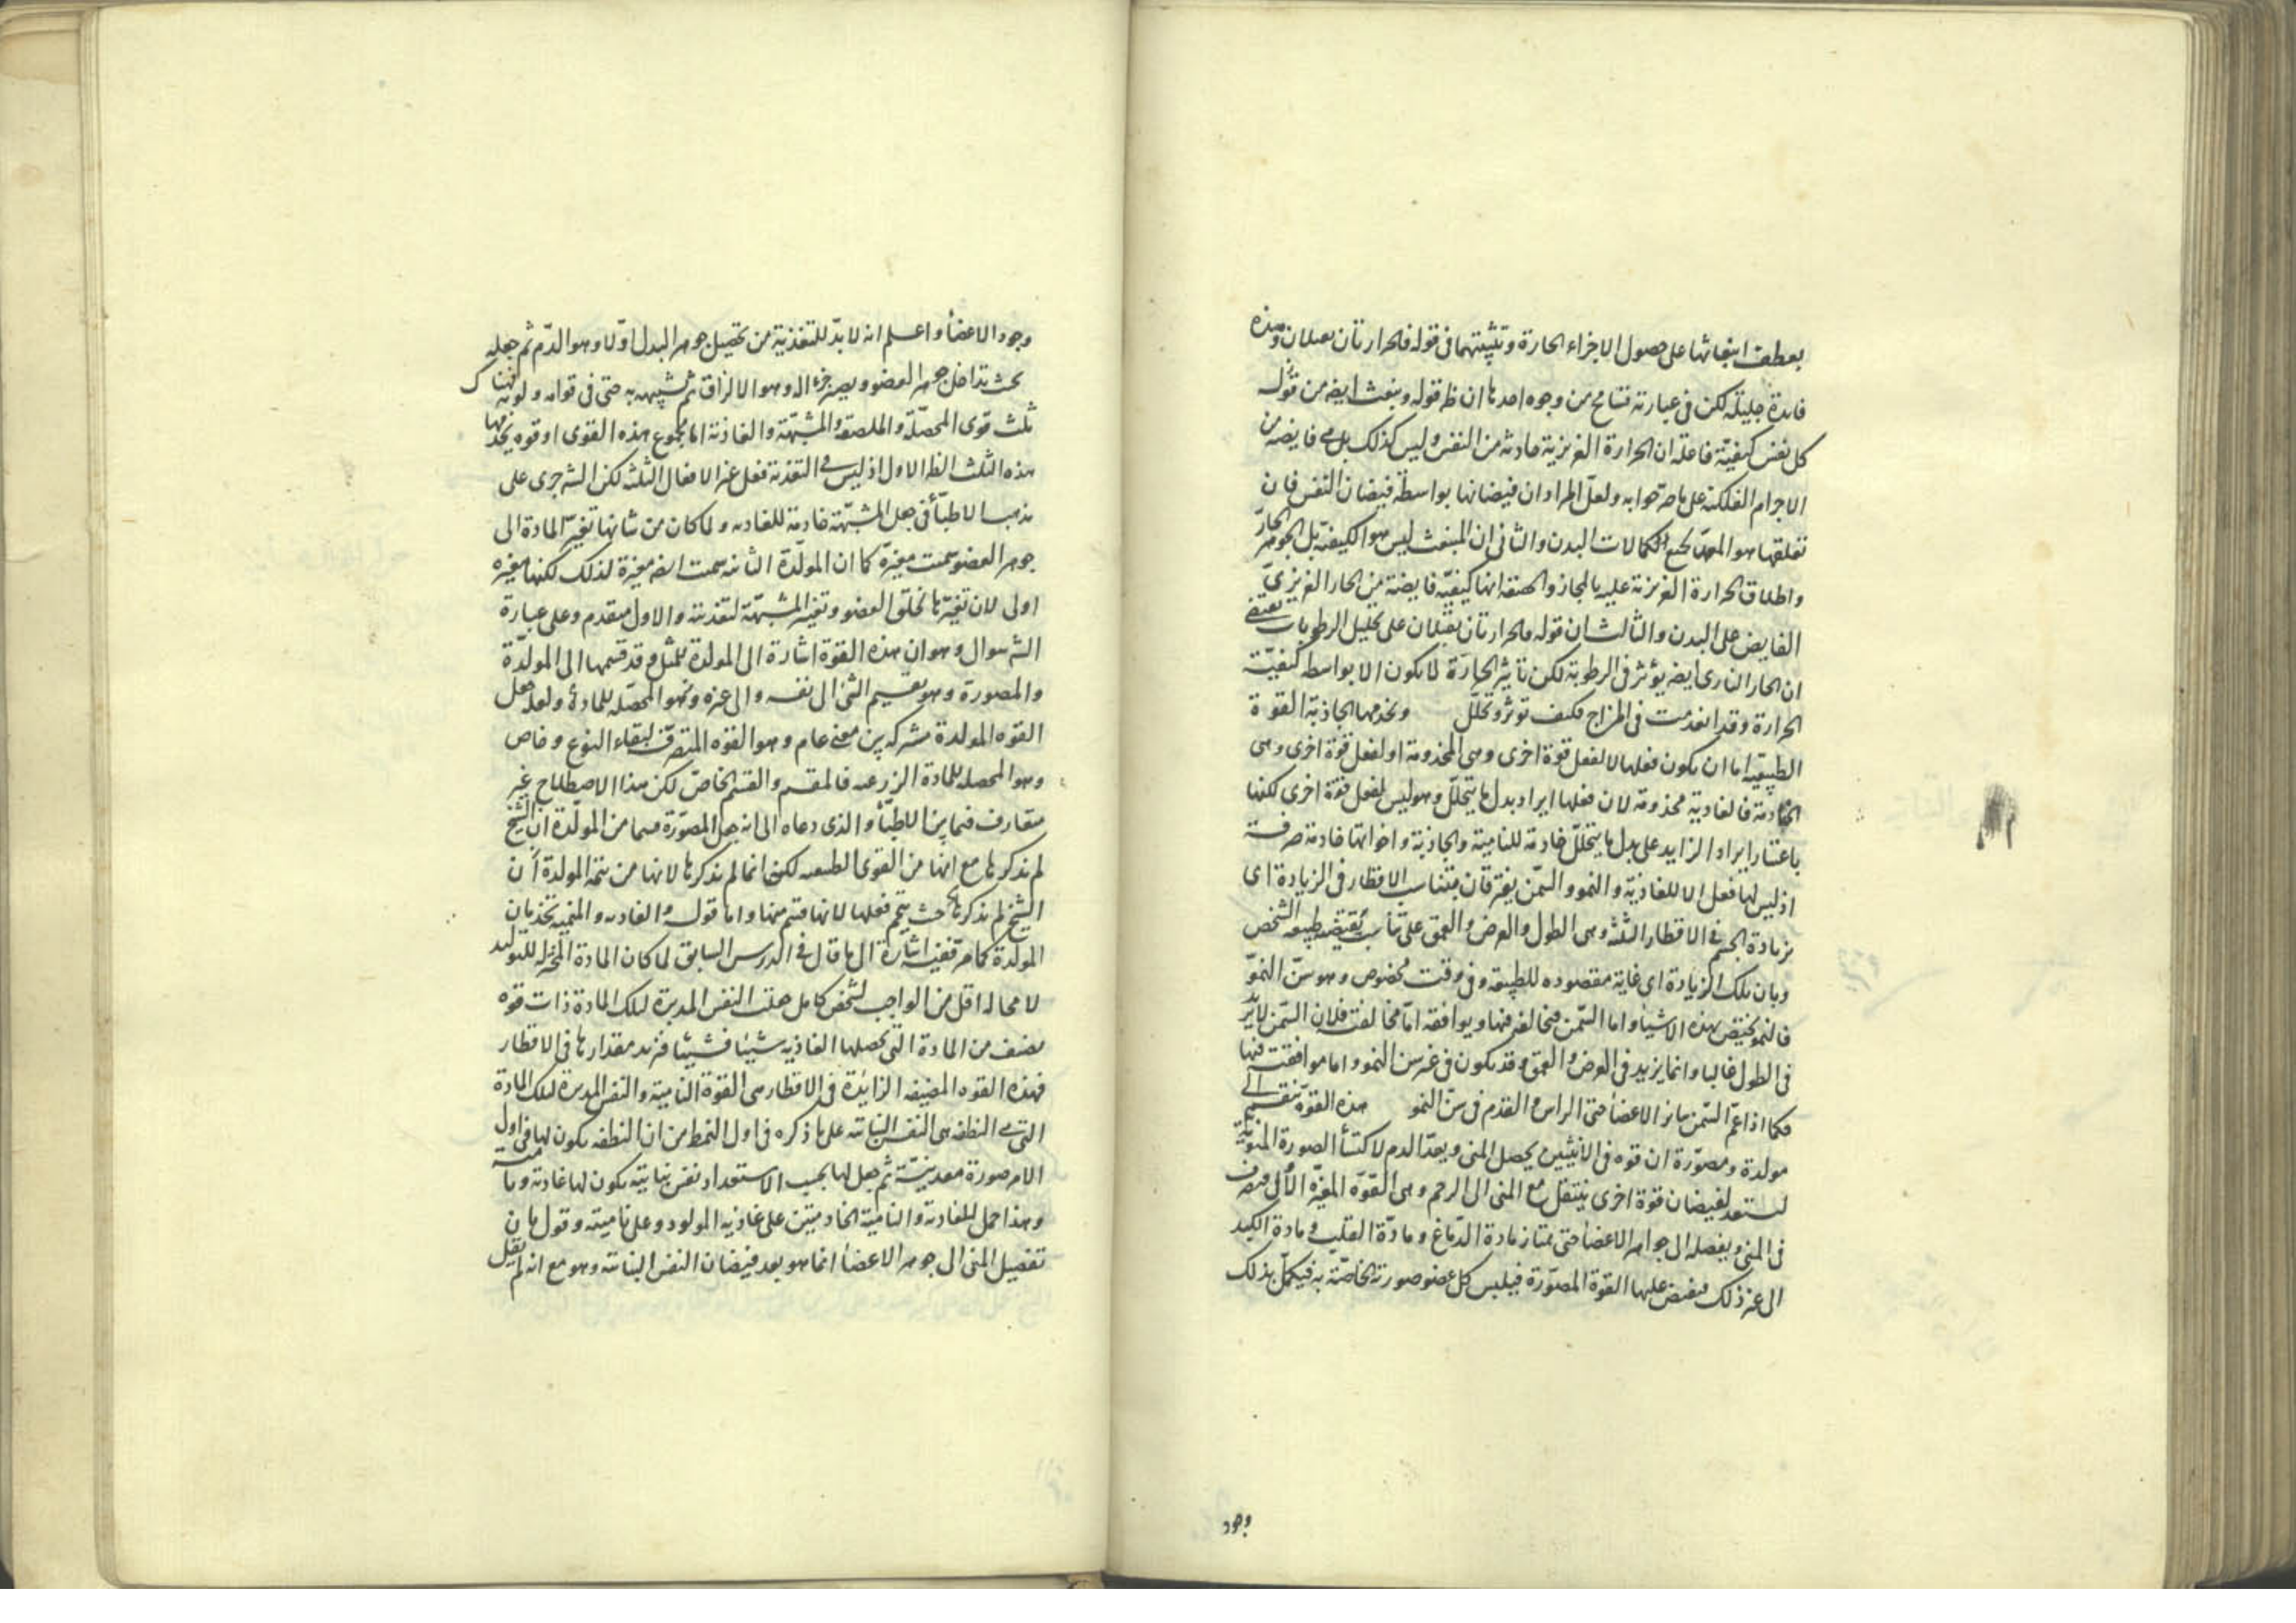 بعطف انبعاثها على حصول الاجزاء الحارة وتثبيتهما فى قوله فالحرارتان تعملان وهذه
فايدة جليلة لكن فى عبارته تسامح من وجوه احدها ان ظ قوله وينبعث ايضه من قوله
كل نفس كيفية فاعلة ان الحرارة الغريزية حادثة من النفس وليس كذلك بل هى فايضه من
الاجرام الفلكية على ما صرحوا به ولعل المراد ان فيضانها بواسطة فيضان النفس فان
تعلقها هو المعد لجميع الكمالات البدن والثانى ان المنبعث ليس هو الكيفية بل الجوهر الحار
واطلاق الحرارة الغريزية عليه بالمجاز والحقيقة انها كيفية فايضة من الحار الغريزى
الفايض على البدن والثالث ان قوله فالحرارتان تقبلان على تحليل الرطوبات يقتضى
ان الحار النارى ايضه يؤثر فى الرطوبة لكن تاثير الحارة لا يكون الا بواسطة كيفية
الحرارة وقد انعدمت فى المزاج فكيف توثر وتحلل ويخدمها الجاذبة القوة
الطبيعية اما ان يكون فعلها لا لفعل قوة اخرى وهى المخدومة او لفعل قوة اخرى وهى
الخادمة فالغاذية مخدومة لان فعلها ايراد بدل ما يتحلل وهو ليس لفعل قوة اخرى لكنها
باعتبار ايراد الزايد على بدل ما يتحلل خادمة للنامية والجاذبة واخواتها خادمة صرفة
اذ ليس لها فعل الا للغاذية والنمو والسمن يفترقان بتناسب الاقطار فى الزيادة اى
بزيادة الجسم فى الاقطار الثلثة وهى الطول والعرض والعمق على تناسب يقتضيه طبيعة الشخص
وبان تلك الزيادة اى غاية مقصوده للطبيعة وفى وقت مخصوص وهو سن النمو
فالنمو يختص بهذه الاشياء واما السمن فيخالفه فيها ويوافقه اما مخالفته فلان السمن لا يزيد
فى الطول غالبا وانما يزيد فى العرض والعمق وقد يكون فى غير سن النمو واما موافقته فيها
فكما اذا عم السمن سائر الاعضاء حتى الراس والقدم فى سن النمو هذه القوة تنقسم الى
مولدة ومصورة ان قوه فى الانثيين يحصل المنى ويعد الدم لاكتساء الصورة المنوية
ليستعد لفيضان قوة اخرى ينتقل مع المنى الى الرحم وهى القوة المغيرة الاولى فيتصرف
فى المنى ويفصله الى جواهر الاعضاء حتى يمتاز مادة الدماغ ومادة القلب ومادة الكبد
الى غير ذلك فيفيض عليها القوة المصورة فيلبس كل عضو صورته الخاصة به فيكمل بذلك
وجود
وجود الاعضاء واعلم انه لا بد للتغذية من تحصيل جوهر البدل اولا وهو الدم ثم جعله
بحيث تداخل جوهر العضو ويصير جزء اله وهو الالزاق ثم تشبيهه به حتى فى قوامه ولونه فهناك
ثلث قوى المحصلة والملصقة والمشبهة والغاذية اما مجموع هذه القوى او قوه يخدمها
هذه الثلث الظ الاول اذ ليس فى التغذية فعل غير الافعال الثلثة لكن الش جرى على
مذهب الاطباء فى جعل المشبهة خادمة للغاذيه ولما كان من شانها تغير المادة الى
جوهر العضو سميت مغيرة كما ان المولدة الثانيه سميت ايضه مغيرة لذلك لكنها مغيره
اولى لان تغيرها لخلق العضو وتغير المشبهة لتغذيته والاول متقدم وعلى عبارة
الش سوال وهو ان هذه القوة اشارة الى المولدة للمثل وقد قسمها الى المولدة
والمصورة وهو تقسيم الشئ الى نفسه والى غيره وهو المحصله للمادة ولعله جعل
القوه المولدة مشتركه بين معنى عام وهو القوه المتصرفة لبقاء النوع وخاص
وهو المحصله للمادة الزرعيه فالمقسم والقسم الخاص لكن هذا الاصطلاح غير
متعارف فيما بين الاطباء والذى دعاه الى انه جعل المصورة قسما من المولدة ان الشيخ
لم يذكرها مع انها من القوى الطبيعيه لكن انما لم يذكرها لانها من تتمة المولدة اى ان
الشيخ لم يذكرها بحيث يتم فعلها لانها قسم منها واما قوله والغاذيه والمنميه يخدمان
المولدة كما مر ففيه اشارة الى ما قال فى الدرس السابق لما كان المادة المختزله للتوليد
لا محاله اقل من الواجب لشخص كامل جعلت النفس المدبرة لتلك المادة ذات قوه
يضيف من المادة التى تحصلها الغاذيه شيئا فشيئا فتزيد مقدارها فى الاقطار
فهذه القوه المضيفه الزائدة فى الاقطار هى القوة النامية والنفس المدبرة لتلك المادة
التى هى النطفه هى النفس النباتيه على ما ذكره فى اول النمط من ان النطفه يكون لها فى اول
الامر صورة معدنية ثم يجعل لها بحسب الاستعداد نفس نباتية يكون لها غاذية ونامية
وهذا حمل للغاذية والنامية الخادمتين على غاذيه المولود وعلى ناميته وقول بان
تفصيل المنى الى جوهر الاعضاء انما هو بعد فيضان النفس النباتيه وهو مع انه لم يقل